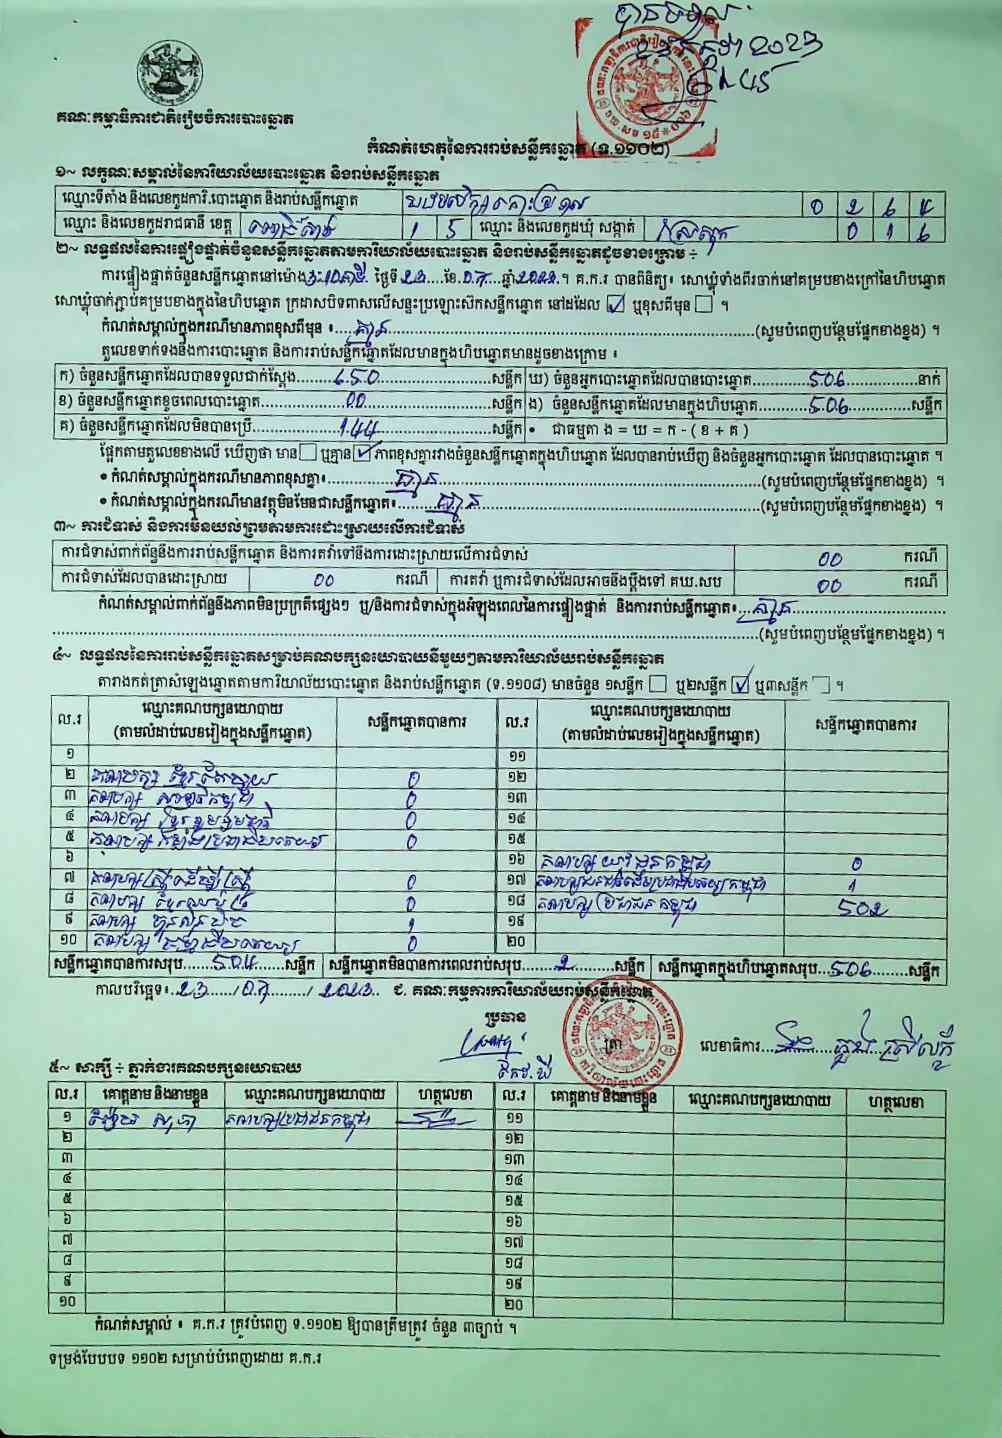 បានទទួល
2023
គណៈកម្មាធិការជាតិរៀបចំការបោះឆ្នោត
កំណត់ហេតុនៃការរាប់សន្លឹកឆ្នោត (ទ.១១០២)
១~ លក្ខណៈសម្គាល់នៃការិយាល័យបោះឆ្នោត និងរាប់សន្លឹកឆ្នោត
ឈ្មោះទីតាំង និងលេខកូដការិ.បោះឆ្នោត និងរាប់សន្លឹកឆ្នោត 0 2 6 4
ឈ្មោះ និងលេខកូដរាជធានី ខេត្ត ពោធិ៍សាត់ 1 5 ឈ្មោះ និងលេខកូដឃុំ សង្កាត់ 0 1 6
២~ លទ្ធផលនៃការផ្ទៀងផ្ទាត់ចំនួនសន្លឹកឆ្នោតតាមការិយាល័យបោះឆ្នោត និងរាប់សន្លឹកឆ្នោតដូចខាងក្រោម ÷
ការផ្ទៀងផ្ទាត់ចំនួនសន្លឹកឆ្នោតនៅម៉ោង 3:10នាទី ថ្ងៃទី 23 ខែ 07 ឆ្នាំ 2023 ។ គ.ក.រ បានពិនិត្យ៖ សោឃ្លុំទាំងពីរចាក់នៅគម្របខាងក្រៅនៃហិបឆ្នោត
សោឃ្លុំចាក់ភ្ជាប់គម្របខាងក្នុងនៃហិបឆ្នោត ក្រដាសបិទពាសលើសន្ទះប្រឡោះស៊កសន្លឹកឆ្នោត នៅដដែល ☑ ឬខុសពីមុន ☐ ។
កំណត់សម្គាល់ក្នុងករណីមានភាពខុសពីមុន ៖ គ្មាន (សូមបំពេញបន្ថែមផ្នែកខាងខ្នង) ។
តួលេខទាក់ទងនឹងការបោះឆ្នោត និងការរាប់សន្លឹកឆ្នោតដែលមានក្នុងហិបឆ្នោតមានដូចខាងក្រោម ៖
ក) ចំនួនសន្លឹកឆ្នោតដែលបានទទួលជាក់ស្តែង 650 សន្លឹក ឃ) ចំនួនអ្នកបោះឆ្នោតដែលបានបោះឆ្នោត 506 នាក់
ខ) ចំនួនសន្លឹកឆ្នោតខូចពេលបោះឆ្នោត 00 សន្លឹក ង) ចំនួនសន្លឹកឆ្នោតដែលមានក្នុងហិបឆ្នោត 506 សន្លឹក
គ) ចំនួនសន្លឹកឆ្នោតដែលមិនបានប្រើ 144 សន្លឹក • ជាធម្មតា ង = ឃ = ក - ( ខ + គ )
ផ្អែកតាមតួលេខខាងលើ ឃើញថា មាន ☐ ឬគ្មាន ☑ ភាពខុសគ្នារវាងចំនួនសន្លឹកឆ្នោតក្នុងហិបឆ្នោត ដែលបានរាប់ឃើញ និងចំនួនអ្នកបោះឆ្នោត ដែលបានបោះឆ្នោត ។
• កំណត់សម្គាល់ក្នុងករណីមានភាពខុសគ្នា៖ គ្មាន (សូមបំពេញបន្ថែមផ្នែកខាងខ្នង) ។
• កំណត់សម្គាល់ក្នុងករណីមានវត្ថុមិនមែនជាសន្លឹកឆ្នោត៖ គ្មាន (សូមបំពេញបន្ថែមផ្នែកខាងខ្នង) ។
៣~ ការជំទាស់ និងការមិនយល់ព្រមតាមការដោះស្រាយលើការជំទាស់
ការជំទាស់ពាក់ព័ន្ធនឹងការរាប់សន្លឹកឆ្នោត និងការតវ៉ាទៅនឹងការដោះស្រាយលើការជំទាស់ 00 ករណី
ការជំទាស់ដែលបានដោះស្រាយ 00 ករណី ការតវ៉ា ឬការជំទាស់ដែលអាចនឹងប្តឹងទៅ គឃ.សប 00 ករណី
កំណត់សម្គាល់ពាក់ព័ន្ធនឹងភាពមិនប្រក្រតីផ្សេងៗ ឬ/និងការជំទាស់ក្នុងអំឡុងពេលនៃការផ្ទៀងផ្ទាត់ និងការរាប់សន្លឹកឆ្នោត៖ គ្មាន
(សូមបំពេញបន្ថែមផ្នែកខាងខ្នង) ។
៤~ លទ្ធផលនៃការរាប់សន្លឹកឆ្នោតសម្រាប់គណបក្សនយោបាយនីមួយៗតាមការិយាល័យរាប់សន្លឹកឆ្នោត
តារាងកត់ត្រាសំឡេងឆ្នោតតាមការិយាល័យបោះឆ្នោត និងរាប់សន្លឹកឆ្នោត (ទ.១១០៨) មានចំនួន ១សន្លឹក ☐ ឬ២សន្លឹក ☑ ឬ៣សន្លឹក ☐ ។
ល.រ ឈ្មោះគណបក្សនយោបាយ (តាមលំដាប់លេខរៀងក្នុងសន្លឹកឆ្នោត) សន្លឹកឆ្នោតបានការ ល.រ ឈ្មោះគណបក្សនយោបាយ (តាមលំដាប់លេខរៀងក្នុងសន្លឹកឆ្នោត) សន្លឹកឆ្នោតបានការ
១ ១១
២ 0 ១២
៣ 0 ១៣
៤ 0 ១៤
៥ 0 ១៥
៦ ១៦ គណបក្ស យុវជនកម្ពុជា 0
៧ គណបក្សស្ត្រីដើម្បីស្ត្រី 0 ១៧ 1
៨ 0 ១៨ គណបក្ស ប្រជាជនកម្ពុជា 502
៩ គណបក្ស ហ្វ៊ុនស៊ិនប៉ិច 1 ១៩
១០ 0 ២០
សន្លឹកឆ្នោតបានការសរុប 504 សន្លឹក សន្លឹកឆ្នោតមិនបានការពេលរាប់សរុប 2 សន្លឹក សន្លឹកឆ្នោតក្នុងហិបឆ្នោតសរុប 506 សន្លឹក
កាលបរិច្ឆេទ៖ 23 / 07 / 2023 ជ. គណៈកម្មការការិយាល័យរាប់សន្លឹកឆ្នោត
ប្រធាន
ត្រា
លេខាធិការ
៥~ សាក្សី ÷ ភ្នាក់ងារគណបក្សនយោបាយ
ល.រ គោត្តនាម និងនាមខ្លួន ឈ្មោះគណបក្សនយោបាយ ហត្ថលេខា ល.រ គោត្តនាម និងនាមខ្លួន ឈ្មោះគណបក្សនយោបាយ ហត្ថលេខា
១ គណបក្សប្រជាជនកម្ពុជា ១១
២ ១២
៣ ១៣
៤ ១៤
៥ ១៥
៦ ១៦
៧ ១៧
៨ ១៨
៩ ១៩
១០ ២០
កំណត់សម្គាល់ ៖ គ.ក.រ ត្រូវបំពេញ ទ.១១០២ ឱ្យបានត្រឹមត្រូវ ចំនួន ៣ច្បាប់ ។
ទម្រង់បែបបទ ១១០២ សម្រាប់បំពេញដោយ គ.ក.រ